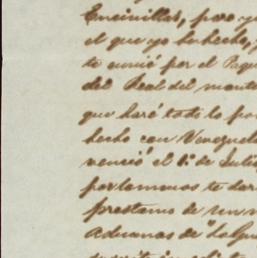 Encinillas, pero y
el que yo
te envié por el Paqu
del Real del monte
que haré todo lo po
hecho con Venezuela
venció el 1º de Julio
por lo menos te dar
prestamo de un m
Aduanas de "La Gua